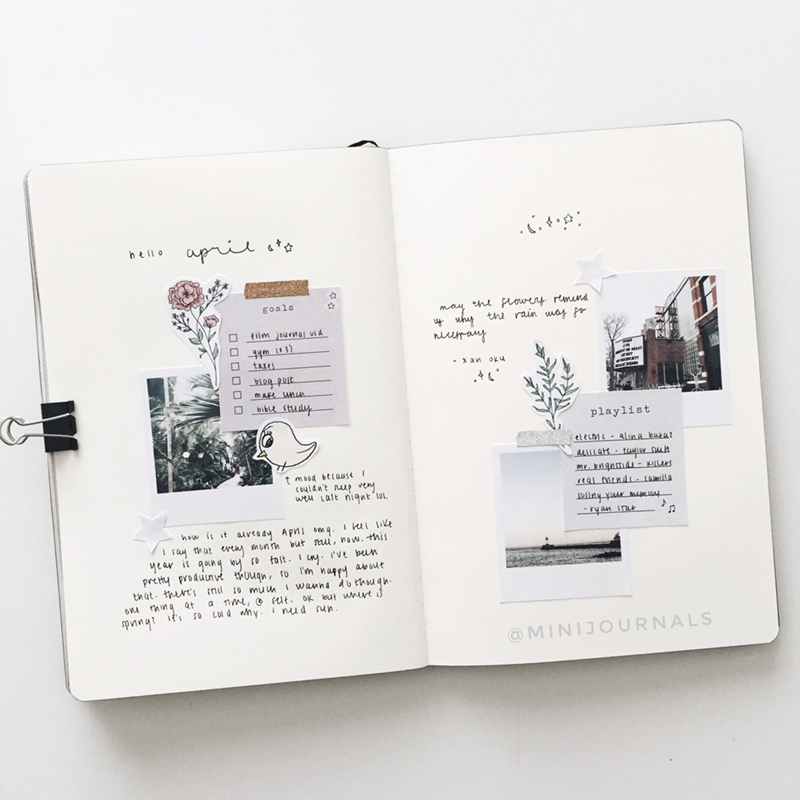 hello april
goals
film journal vid
gym (x3)
taxes
blog post
make lunch
bible study
↑ mood because i
couldn't sleep very
well last night lol.
how is it already april omg. i feel like
i say that every month but still, how. this
year is going by so fast. i cry. i've been
pretty productive though, so i'm happy about
that. there's still so much i wanna do though.
one thing at a time, @ self. ok but where is
spring? it's so cold why. i need sun.
may the flowers remind
us why the rain was so
necessary
- xan oku
playlist
electric - alina baraz
delicate - taylor swift
mr. brightside - killers
real friends - camila
losing your memory
- ryan star
@MINIJOURNALS